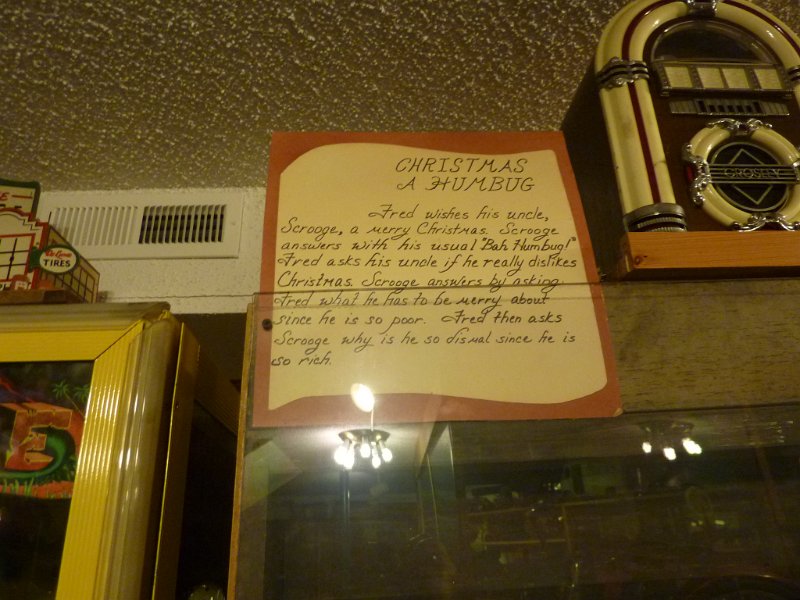 CHRISTMAS
A HUMBUG
Fred wishes his uncle,
Scrooge, a merry Christmas. Scrooge
answers with his usual "Bah Humbug!"
Fred asks his uncle if he really dislikes
Christmas. Scrooge answers by asking
Fred what he has to be merry about
since he is so poor. Fred then asks
Scrooge why is he so dismal since he is
so rich.
CROSLEY
TIRES
E